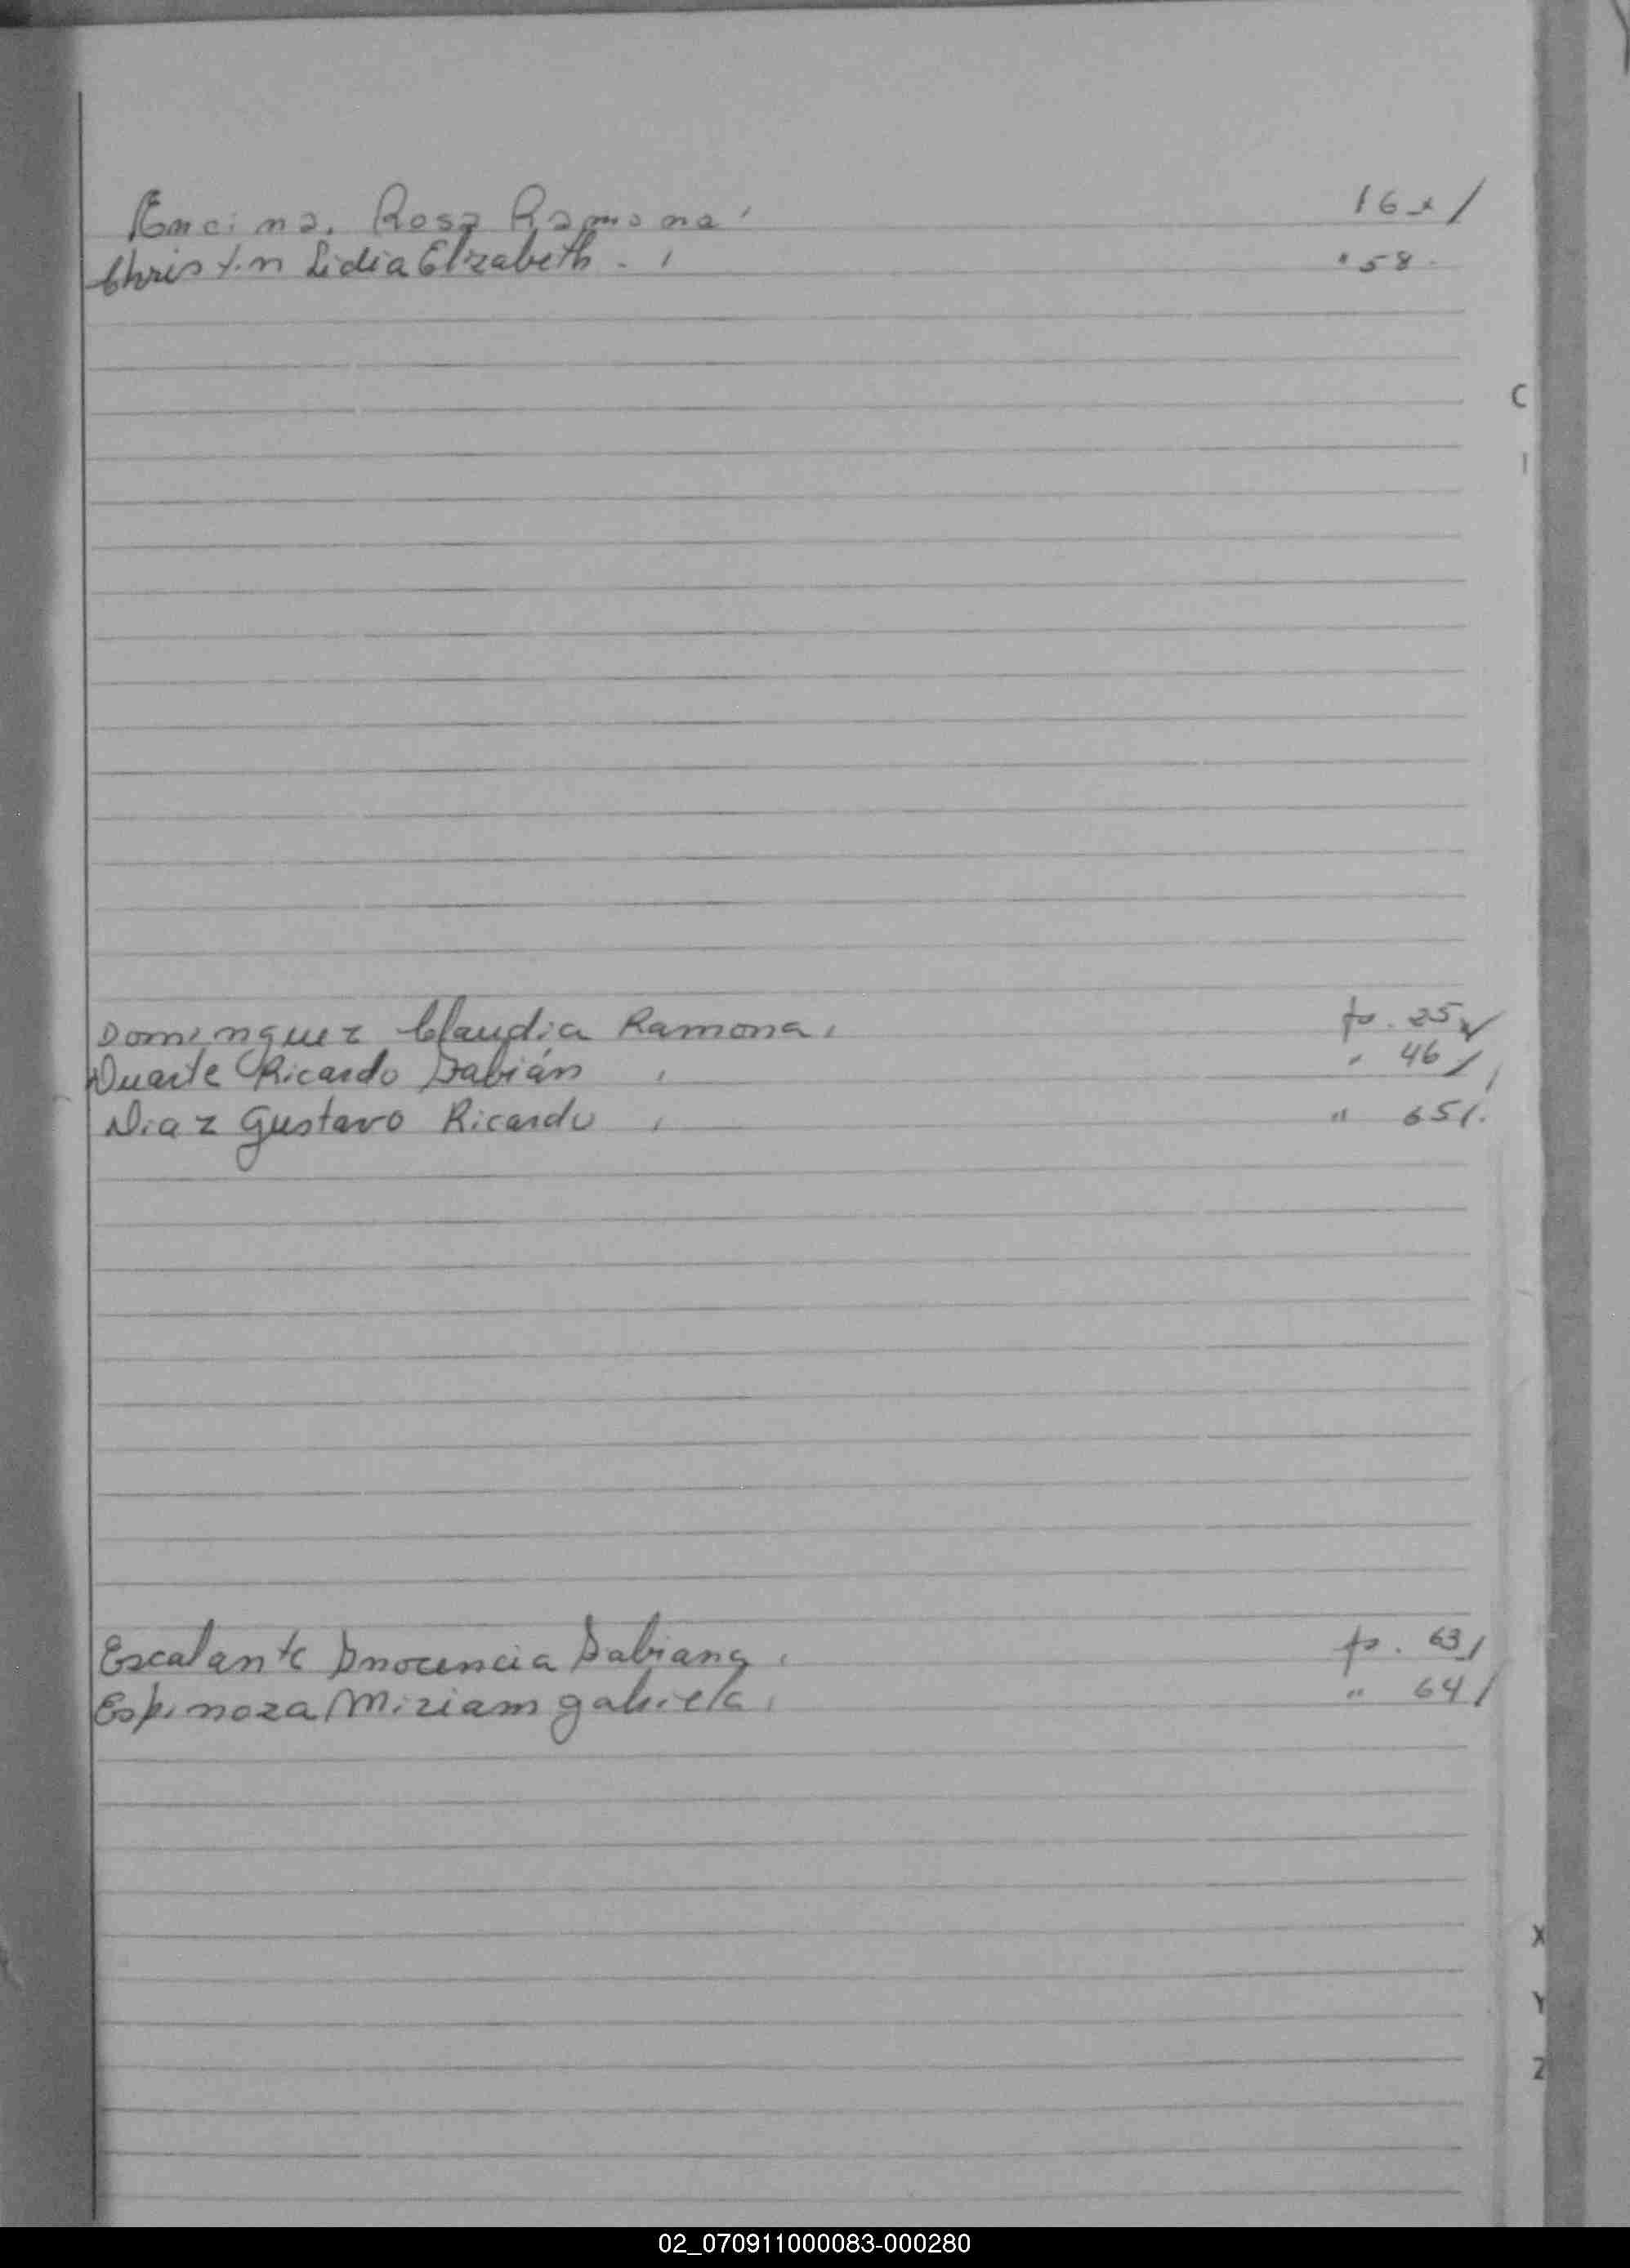 Encina, Rosa Ramona 16
Christ.n Lidia Elizabeth . " 58
C
I
Dominguez Claudia Ramona, fo. 25
Duarte Ricardo Fabián " 46
Diaz Gustavo Ricardo " 65
Escalante Inocencia Fabiana fo. 63
Espinoza Miriam gabriela " 64
X
Y
Z
02_070911000083-000280